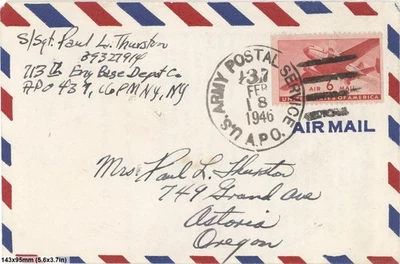 S/Sgt. Paul L. Thurston
39327914
713th Eng Base Depot Co
APO 437, c/o PM NY, NY
U.S. ARMY POSTAL SERVICE
A.P.O.
437
FEB
18
1946
AIR 6¢ MAIL
UNITED STATES OF AMERICA
AIR MAIL
Mrs. Paul L. Thurston
749 Grand Ave
Astoria
Oregon
143x95mm (5,6x3.7in)